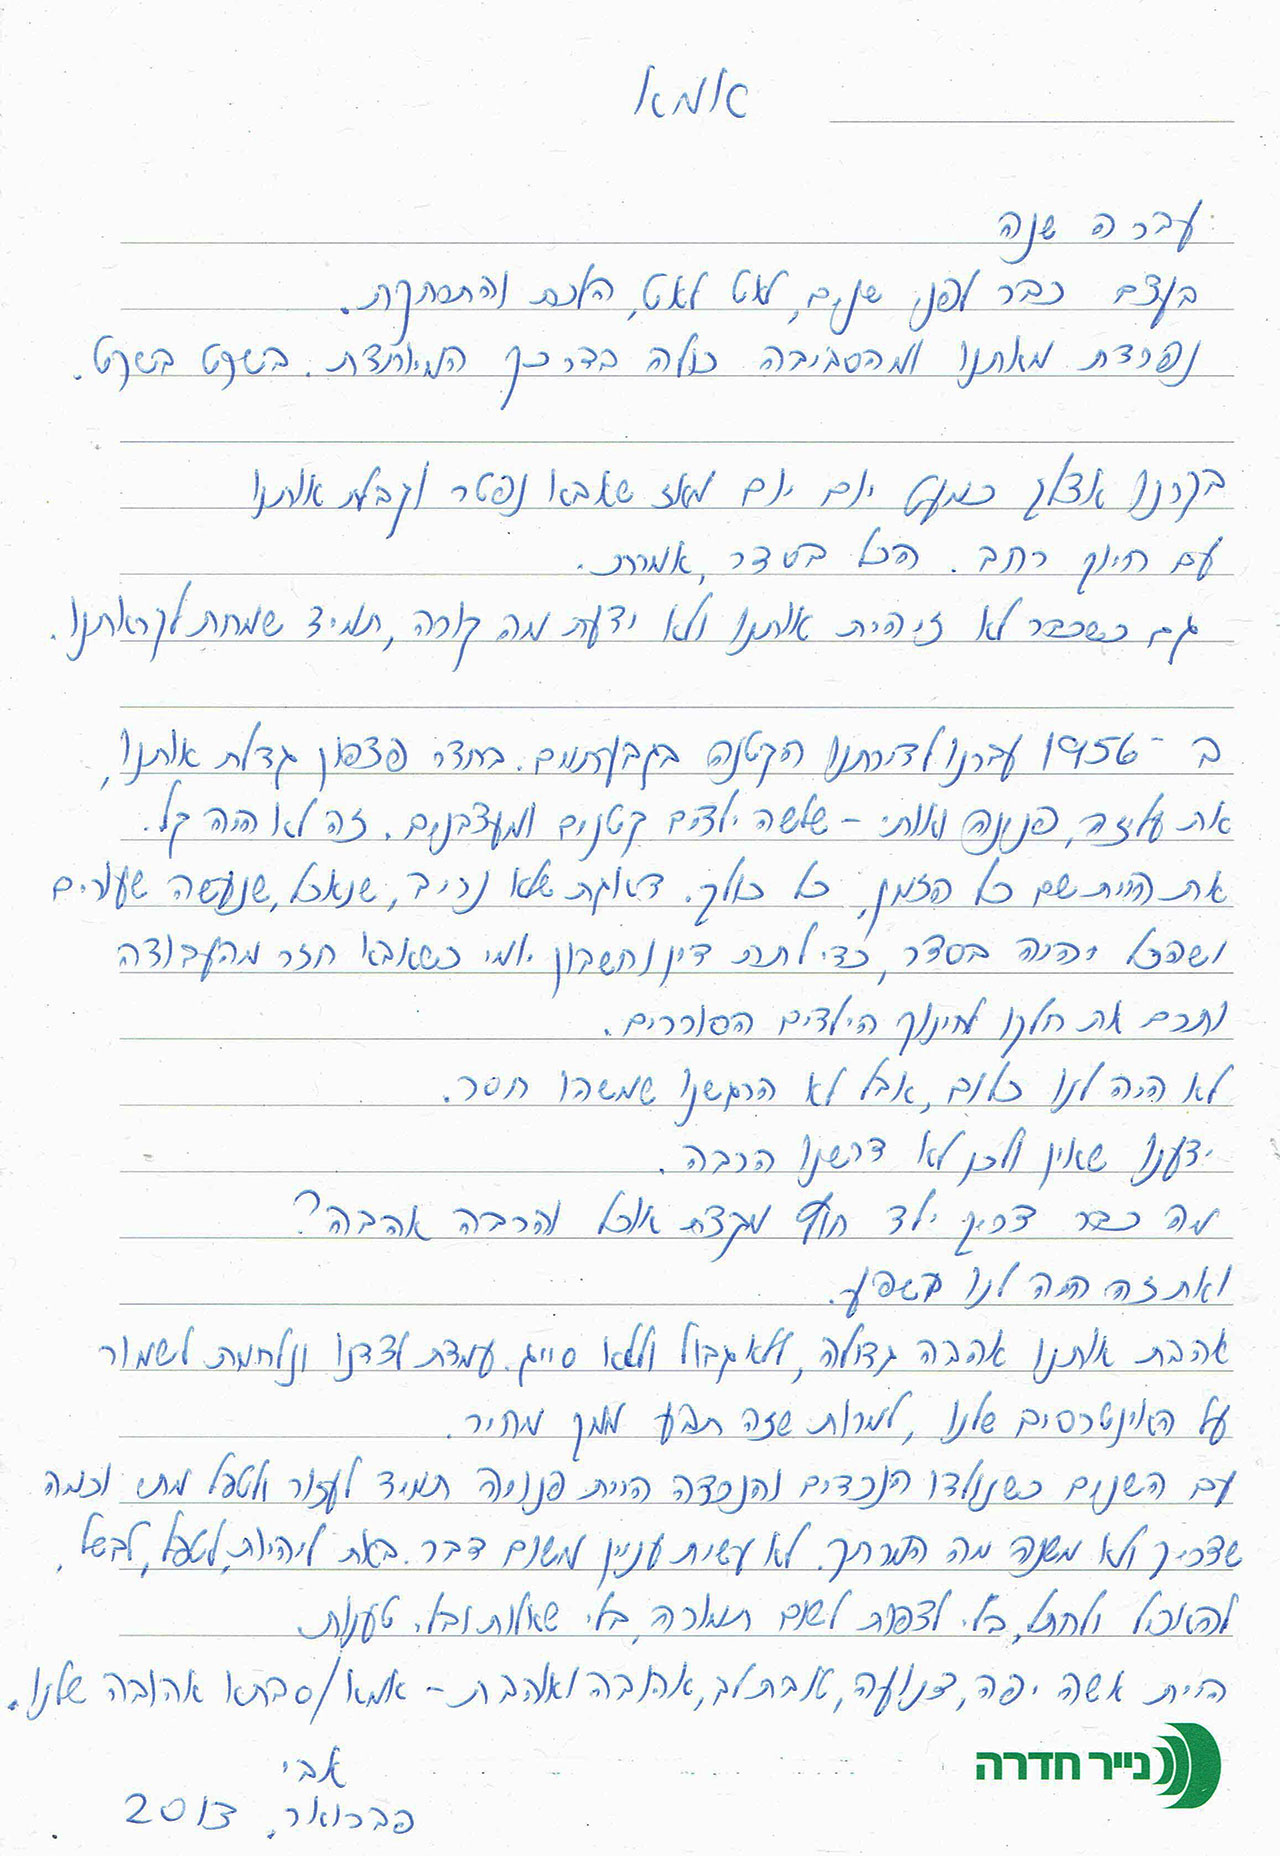 אמא
עברה שנה
בעצם כבר לפני שנים, לאט לאט, הלכת והתרחקת.
נפרדת מאתנו ומהסביבה כולה בדרכך המיוחדת. בשקט בשקט.
בקרנו אצלך כמעט יום יום מאז שאבא נפטר וקבלת אותנו
עם חיוך רחב. הכל בסדר, אמרת.
גם כשכבר לא זיהית אותנו ולא ידעת מה קורה, תמיד שמחת לקראתנו.
ב - 1956 עברנו לדירתנו הקטנה בגבעתיים. בחדר פצפון גדלת אותנו,
את עליזה, פנינה ואותי - שלשה ילדים קטנים ומעצבנים. זה לא היה קל.
את היית שם כל הזמן, כל כולך. דאגת שלא נריב, שנאכל, שנעשה שעורים
ושהכל יהיה בסדר, כדי לתת דין וחשבון יומי כשאבא חזר מהעבודה
ותרם את חלקו לחינוך הילדים הסוררים.
לא היה לנו כלום, אבל לא הרגשנו שמשהו חסר.
ידענו שאין ולכן לא דרשנו הרבה.
מה כבר צריך ילד חוץ מקצת אוכל והרבה אהבה?
ואת זה היה לנו בשפע.
אהבת אותנו אהבה גדולה, ללא גבול וללא סייג. עמדת לצדנו ונלחמת לשמור
על האינטרסים שלנו, למרות שזה תבע ממך מחיר.
עם השנים כשנולדו הנכדים והנכדה היית פנויה תמיד לעזור ולטפל מתי וכמה
שצריך ולא משנה מה המרחק. לא עשית עניין משום דבר. באת להיות, לטפל, לבשל,
להאכיל ולחתל, בלי לצפות לשום תמורה, בלי שאלות ובלי טענות.
היית אשה יפה, צנועה, טובת לב, אהובה ואוהבת - אמא/סבתא אהובה שלנו.
אבי
פברואר, 2013
נייר חדרה